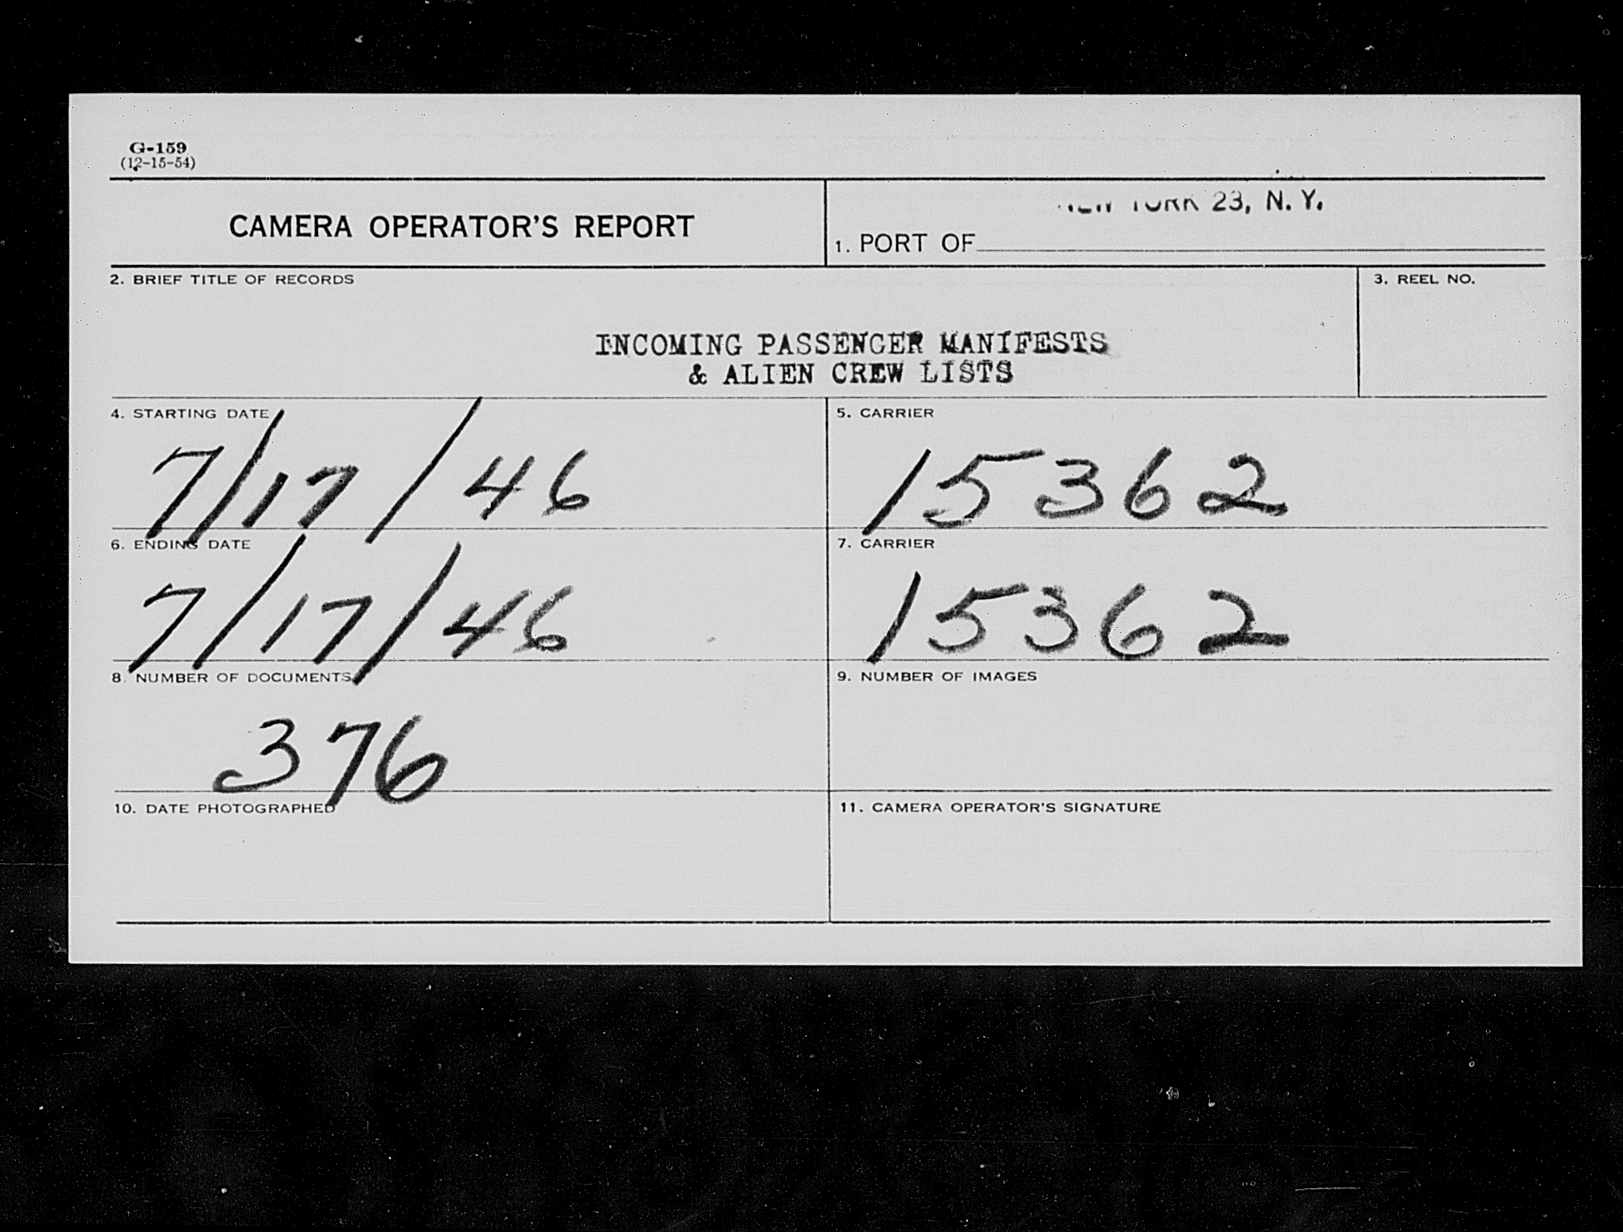 G-159
(12-15-54)
CAMERA OPERATOR'S REPORT
NEW YORK 23, N.Y.
1. PORT OF
2. BRIEF TITLE OF RECORDS
3. REEL NO.
INCOMING PASSENGER MANIFESTS
& ALIEN CREW LISTS
4. STARTING DATE
5. CARRIER
7/17/46
15362
6. ENDING DATE
7. CARRIER
7/17/46
15362
8. NUMBER OF DOCUMENTS
9. NUMBER OF IMAGES
376
10. DATE PHOTOGRAPHED
11. CAMERA OPERATOR'S SIGNATURE